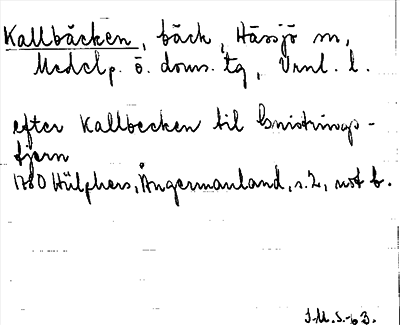 Kallbäcken, bäck, Hässjö sn,
Medelp. ö. doms. tg, Vnnl. l.
efter Kallbecken til Gnistrings-
tjern
1780 Hülphers, Ångermanland, s. 2, not b.
I.M.S.-63.